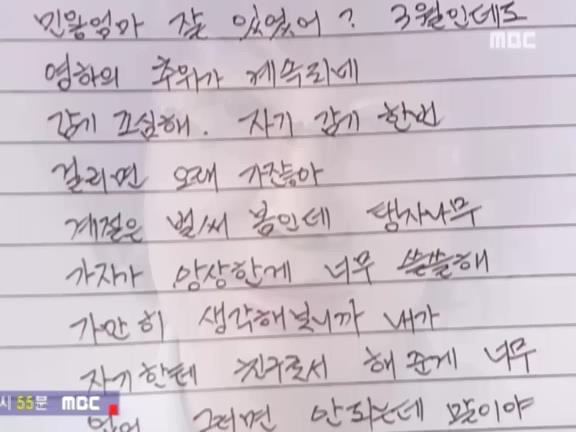 민왕엄마 잘 있었어? 3월인데도
MBC
영하의 추위가 계속되네
감기 조심해. 자기 감기 한번
걸리면 오래 가잖아
계절은 벌써 봄인데 탱자나무
가지가 앙상한게 너무 쓸쓸해
가만히 생각해보니까 내가
자기한테 친구로서 해준게 너무
없어 그러면 안되는데 말이야
시 55분 MBC